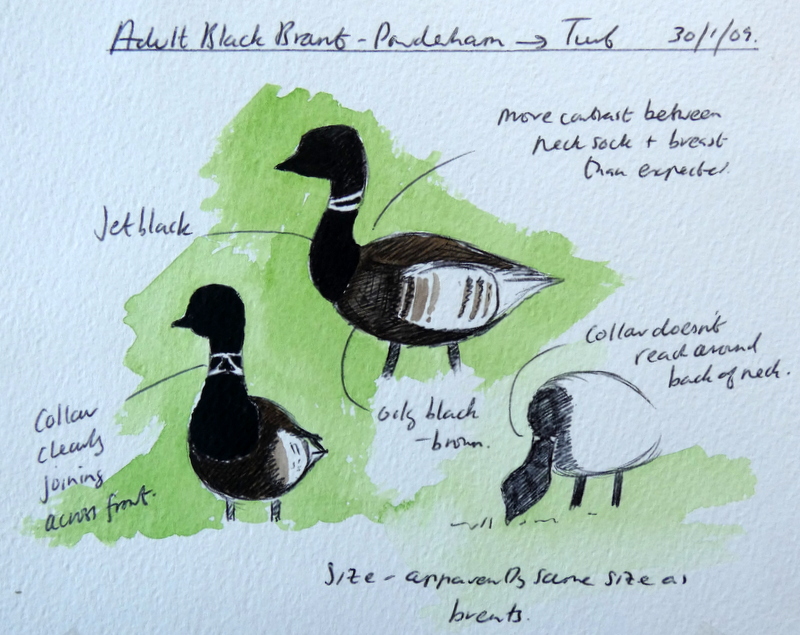 Adult Black Brant - Powderham → Turf 30/1/09.
more contrast between
neck sock + breast
than expected.
Jet black
Collar doesn't
reach around
back of neck.
Collar
clearly
joining
across front.
oily black
-brown.
Size - apparently same size as
brents.